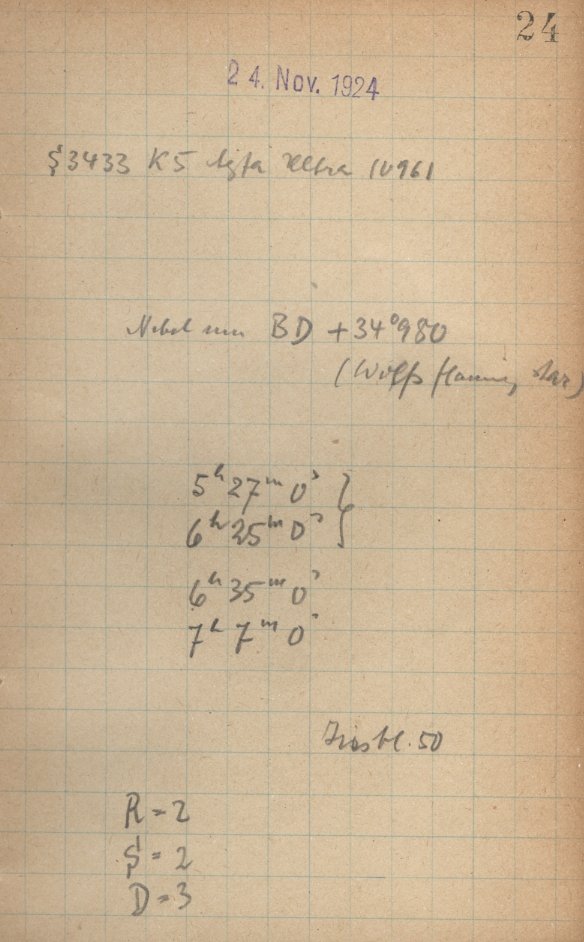 24
24. Nov. 1924
S3433 K5 Agfa Ultra
Nebel um BD +34°980
(Wolfs flaming star)
5ʰ27ᵐ0ˢ }
6ʰ25ᵐ0ˢ
6ʰ35ᵐ0ˢ
7ʰ7ᵐ0ˢ
Irisbl. 50
R = 2
S = 2
D = 3